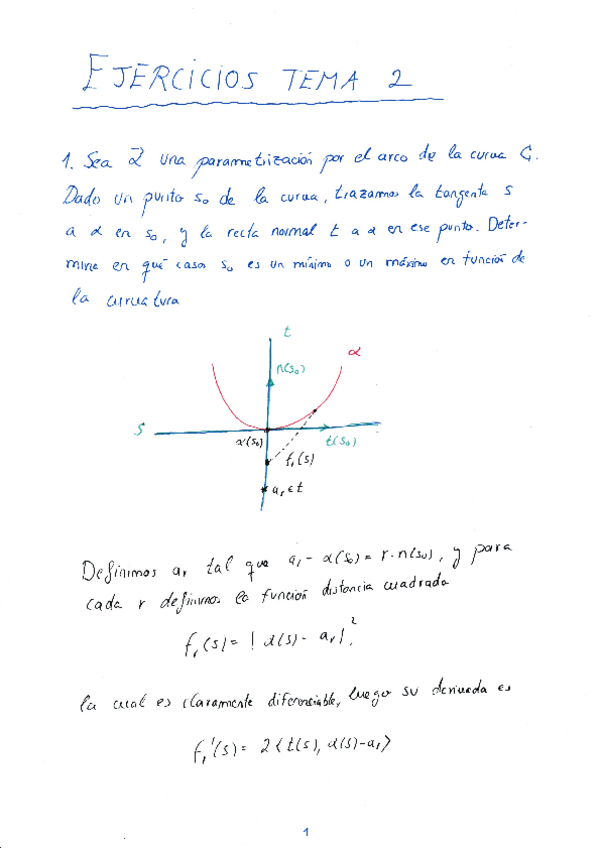 EJERCICIOS TEMA 2
1. Sea α una parametrización por el arco de la curva C.
Dado un punto s₀ de la curva, trazamos la tangente s
a α en s₀, y la recta normal t a α en ese punto. Deter-
mina en qué casos s₀ es un mínimo o un máximo en función de
la curvatura
t
α
n(s₀)
s
α(s₀)
t(s₀)
fᵣ(s)
aᵣ ∈ t
Definimos aᵣ tal que aᵣ - α(s₀) = r · n(s₀), y para
cada r definimos la función distancia cuadrada
fᵣ(s) = | α(s) - aᵣ |²,
la cual es claramente diferenciable, luego su derivada es
fᵣ'(s) = 2⟨t(s), α(s)-aᵣ⟩
1